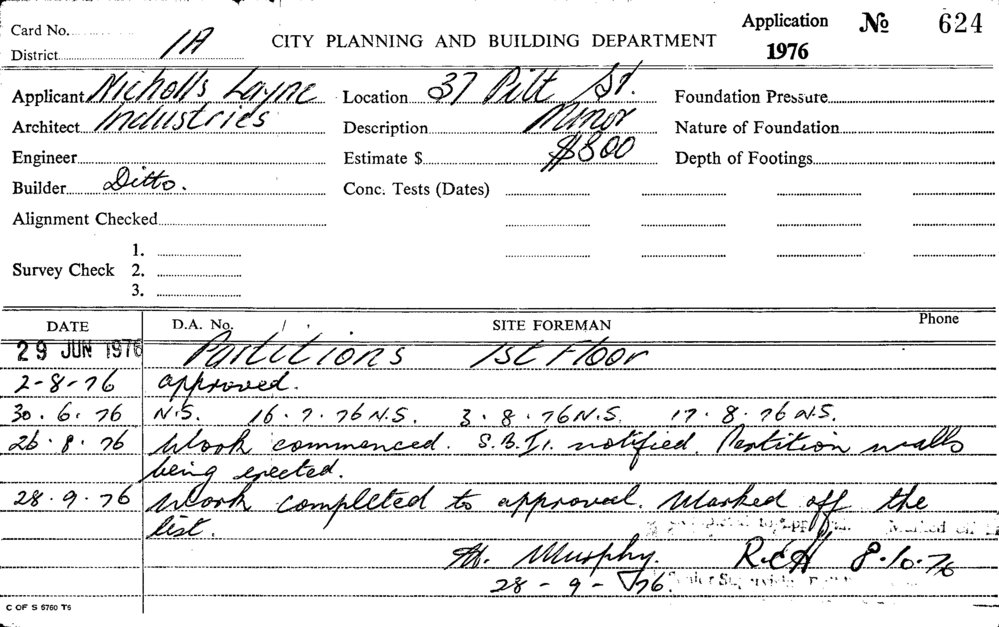 Card No.
District 1A
CITY PLANNING AND BUILDING DEPARTMENT
Application 1976
No 624
Applicant Nicholls Layne
Location 37 Pitt St.
Foundation Pressure
Architect Industries
Description Minor
Nature of Foundation
Engineer
Estimate $ $800
Depth of Footings
Builder Ditto.
Conc. Tests (Dates)
Alignment Checked
Survey Check
1.
2.
3.
DATE D.A. No. SITE FOREMAN Phone
29 JUN 1976 Partitions 1st Floor
2-8-76 approved.
30.6.76 N.S. 16.7.76 N.S. 3.8.76 N.S. 17.8.76 N.S.
26.8.76 Work commenced. S.B.I. notified. Partition walls
being erected.
28.9.76 Work completed to approval. Marked off the
list.
Murphy. R.C.H 8.10.76
28-9-76.
C OF S 6760 T6